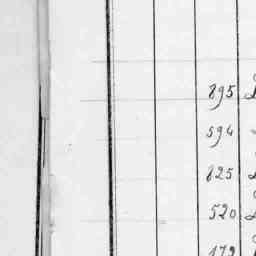 895
594
825
520
172